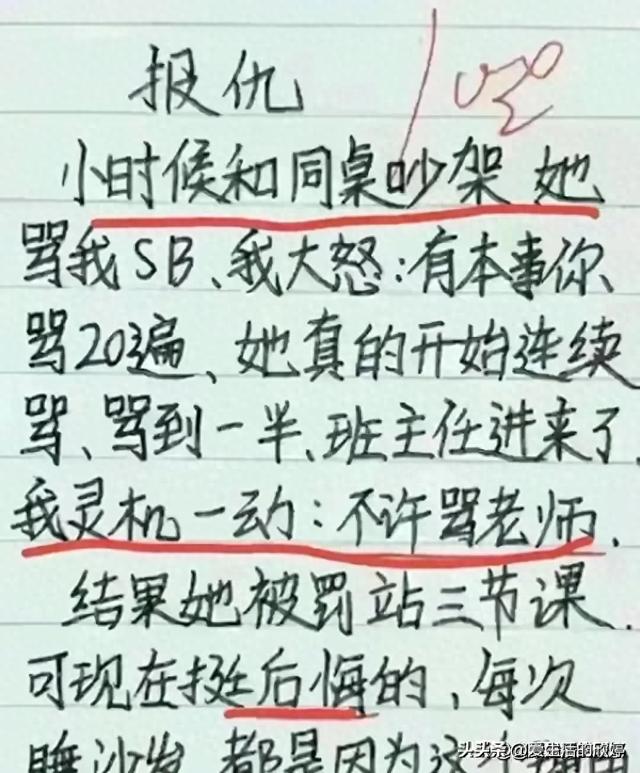 报仇
小时候和同桌吵架 她
骂我SB、我大怒:有本事你、
骂20遍、她真的开始连续
骂、骂到一半、班主任进来了.
我灵机一动:不许骂老师.
结果她被罚站三节课.
可现在挺后悔的、每次
睡沙发 都是因为这个
头条@爱生活的欣婷